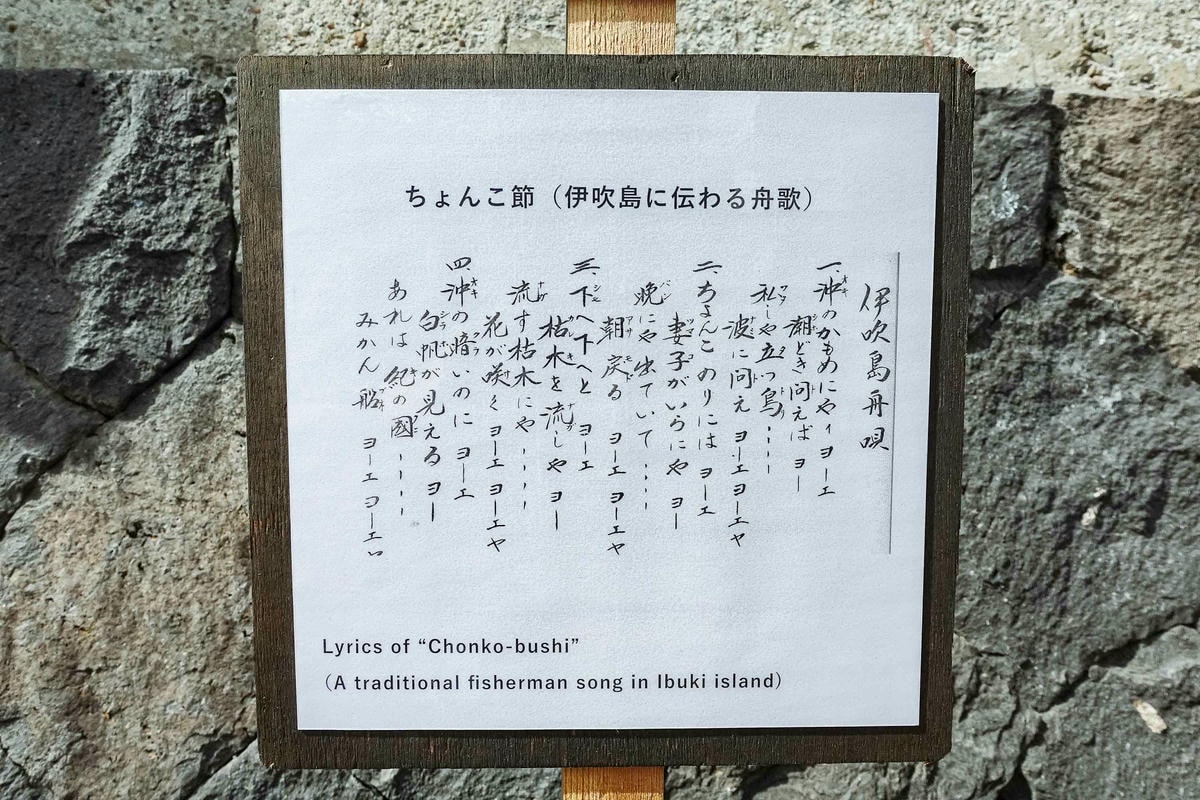 ちょんこ節（伊吹島に伝わる舟歌）
伊吹島舟唄
一、沖のかもめにやィ ヨーエ
潮どき問えば ヨー
私しや立つ鳥‥‥
波に問え ヨーエヨーエヤ
二、ちょんこのりには ヨーエ
妻子がいらにや ヨー
晩にや出ていて‥‥
朝戻る ヨーエ ヨーエヤ
三、下へ下へと ヨーエ
枯木を流しや ヨー
流す枯木にや‥‥
花が咲く ヨーエ ヨーエヤ
四、沖の暗いのに ヨーエ
白帆が見える ヨー
あれは 紀の國‥‥
みかん船 ヨーエ ヨーエ
Lyrics of “Chonko-bushi”
（A traditional fisherman song in Ibuki island）